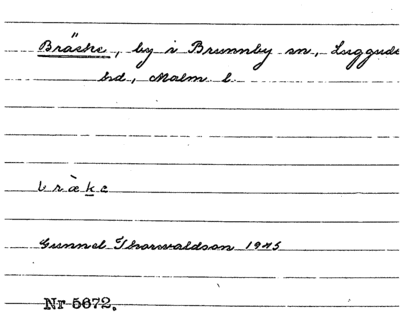 Bräcke, by i Brunnby sn, Luggude
hd, Malm l.
bràke
Gunnel Thorwaldson 1945
Nr 5672.